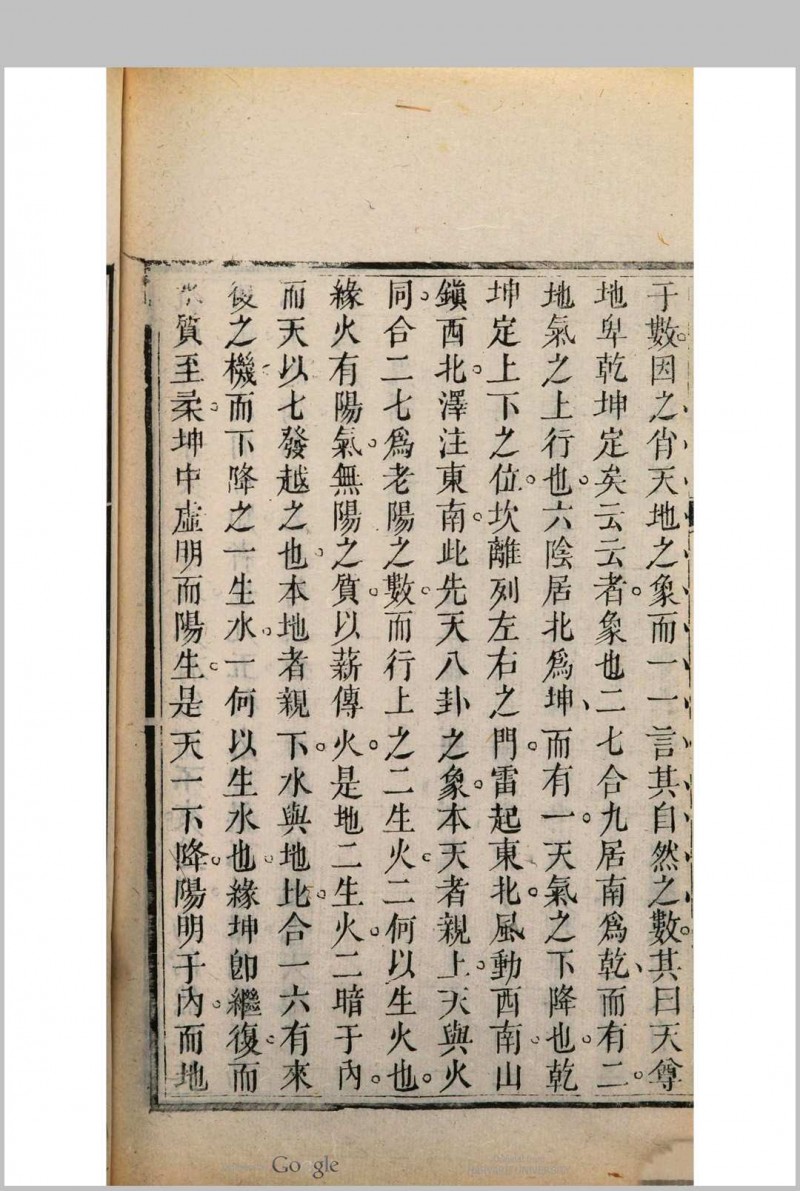 于數因之肖天地之象而一一言其自然之數其曰天尊
地卑乾坤定矣云云者象也二七合九居南爲乾而有二
地氣之上行也六陰居北爲坤而有一天氣之下降也乾
坤定上下之位坎離列左右之門雷起東北風動西南山
鎮西北澤注東南此先天八卦之象本天者親上天與火
同合二七爲老陽之數而行上之二生火二何以生火也
緣火有陽氣無陽之質以薪傳火是地二生火二暗于內
而天以七發越之也本地者親下水與地比合一六有來
復之機而下降之一生水一何以生水也緣坤卽繼復而
質至柔坤中虛明而陽生是天一下降陽明于內而地
Google